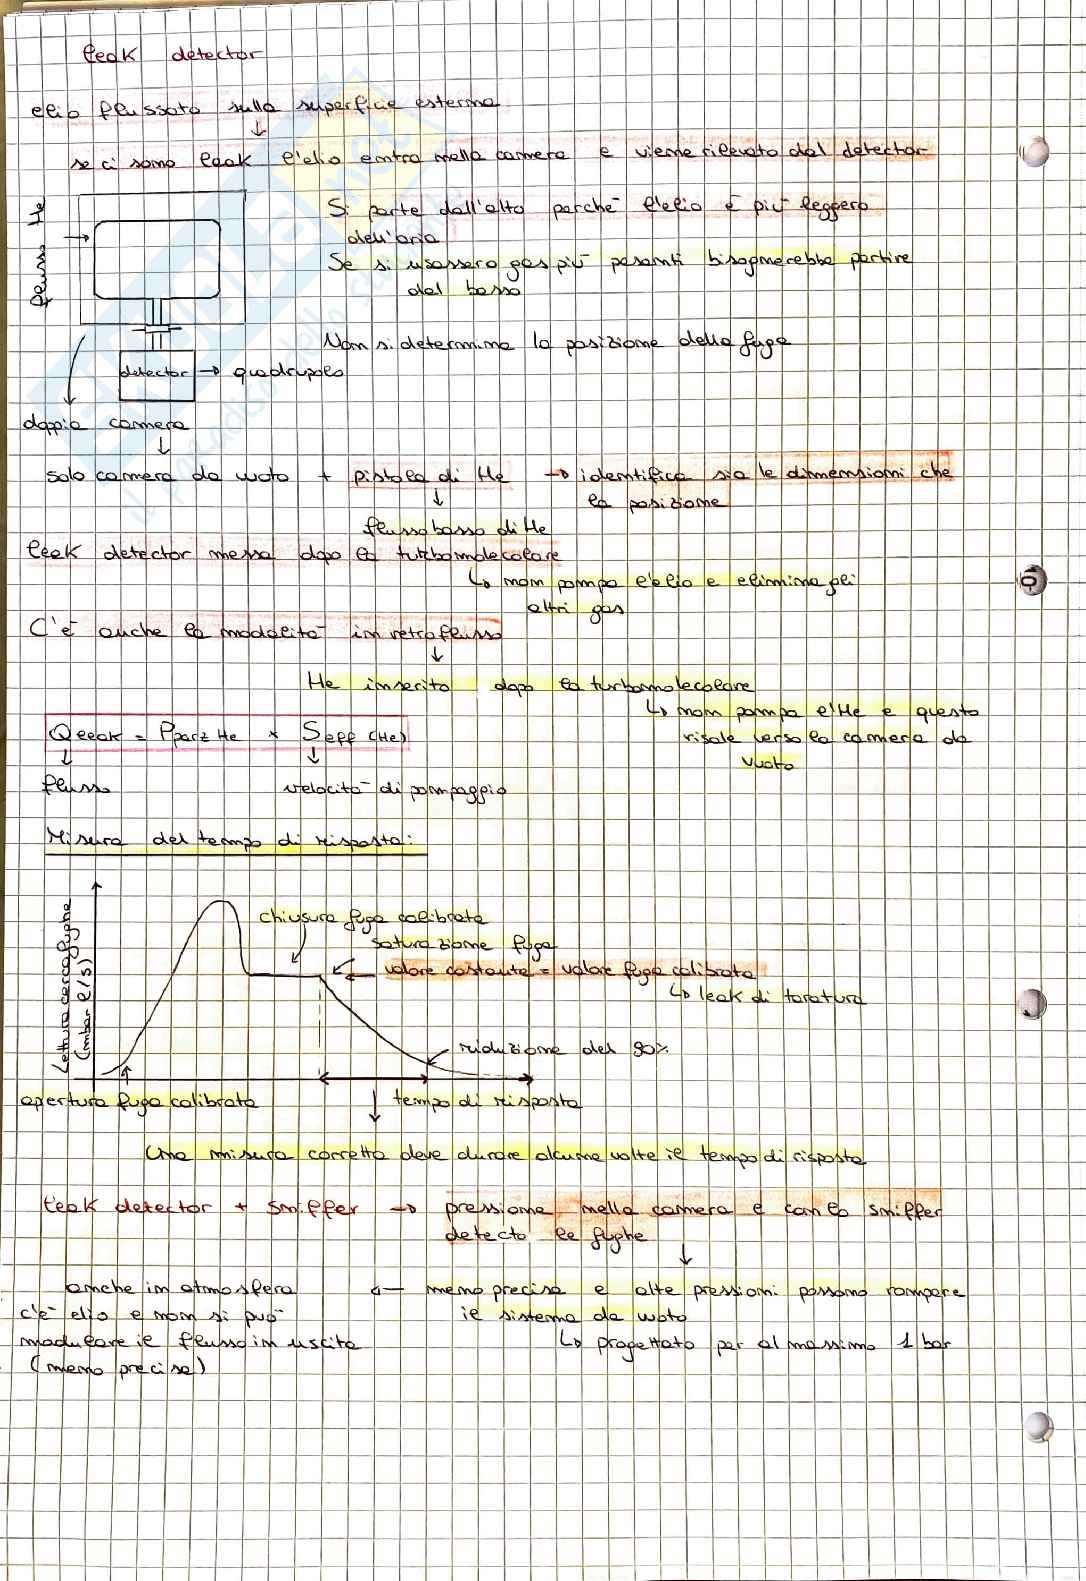 leak detector
elio flussato sulla superficie esterna
↓
se ci sono leak l'elio entra nella camera e viene rilevato dal detector
Si parte dall'alto perché l'elio è più leggero
dell'aria
flusso He
Se si usassero gas più pesanti bisognerebbe partire
dal basso
Non si determina la posizione della fuga
detector → quadrupolo
doppia camera
↓
solo camera da vuoto + pistola di He → identifica sia le dimensioni che
la posizione
↓
flusso basso di He
leak detector messo dopo la turbomolecolare
↳ non pompa l'elio e elimina gli
altri gas
C'è anche la modalità in retroflusso
↓
He inserito dopo la turbomolecolare
↳ non pompa l'He e questo
risale verso la camera da
vuoto
Qleak = Pparz He * Seff (He)
↓ ↓
flusso velocità di pompaggio
Misura del tempo di risposta:
Lettura cercafughe
(mbar l/s)
chiusura fuga calibrata
saturazione fuga
valore costante = valore fuga calibrata
↳ leak di taratura
riduzione del 90%
apertura fuga calibrata
tempo di risposta
Una misura corretta deve durare alcune volte il tempo di risposta
leak detector + sniffer → pressione nella camera e con lo sniffer
detecto le fughe
↓
anche in atmosfera ← meno precisa e alte pressioni possono rompere
c'è elio e non si può il sistema da vuoto
modulare il flusso in uscita ↳ progettato per al massimo 1 bar
(meno precisa)